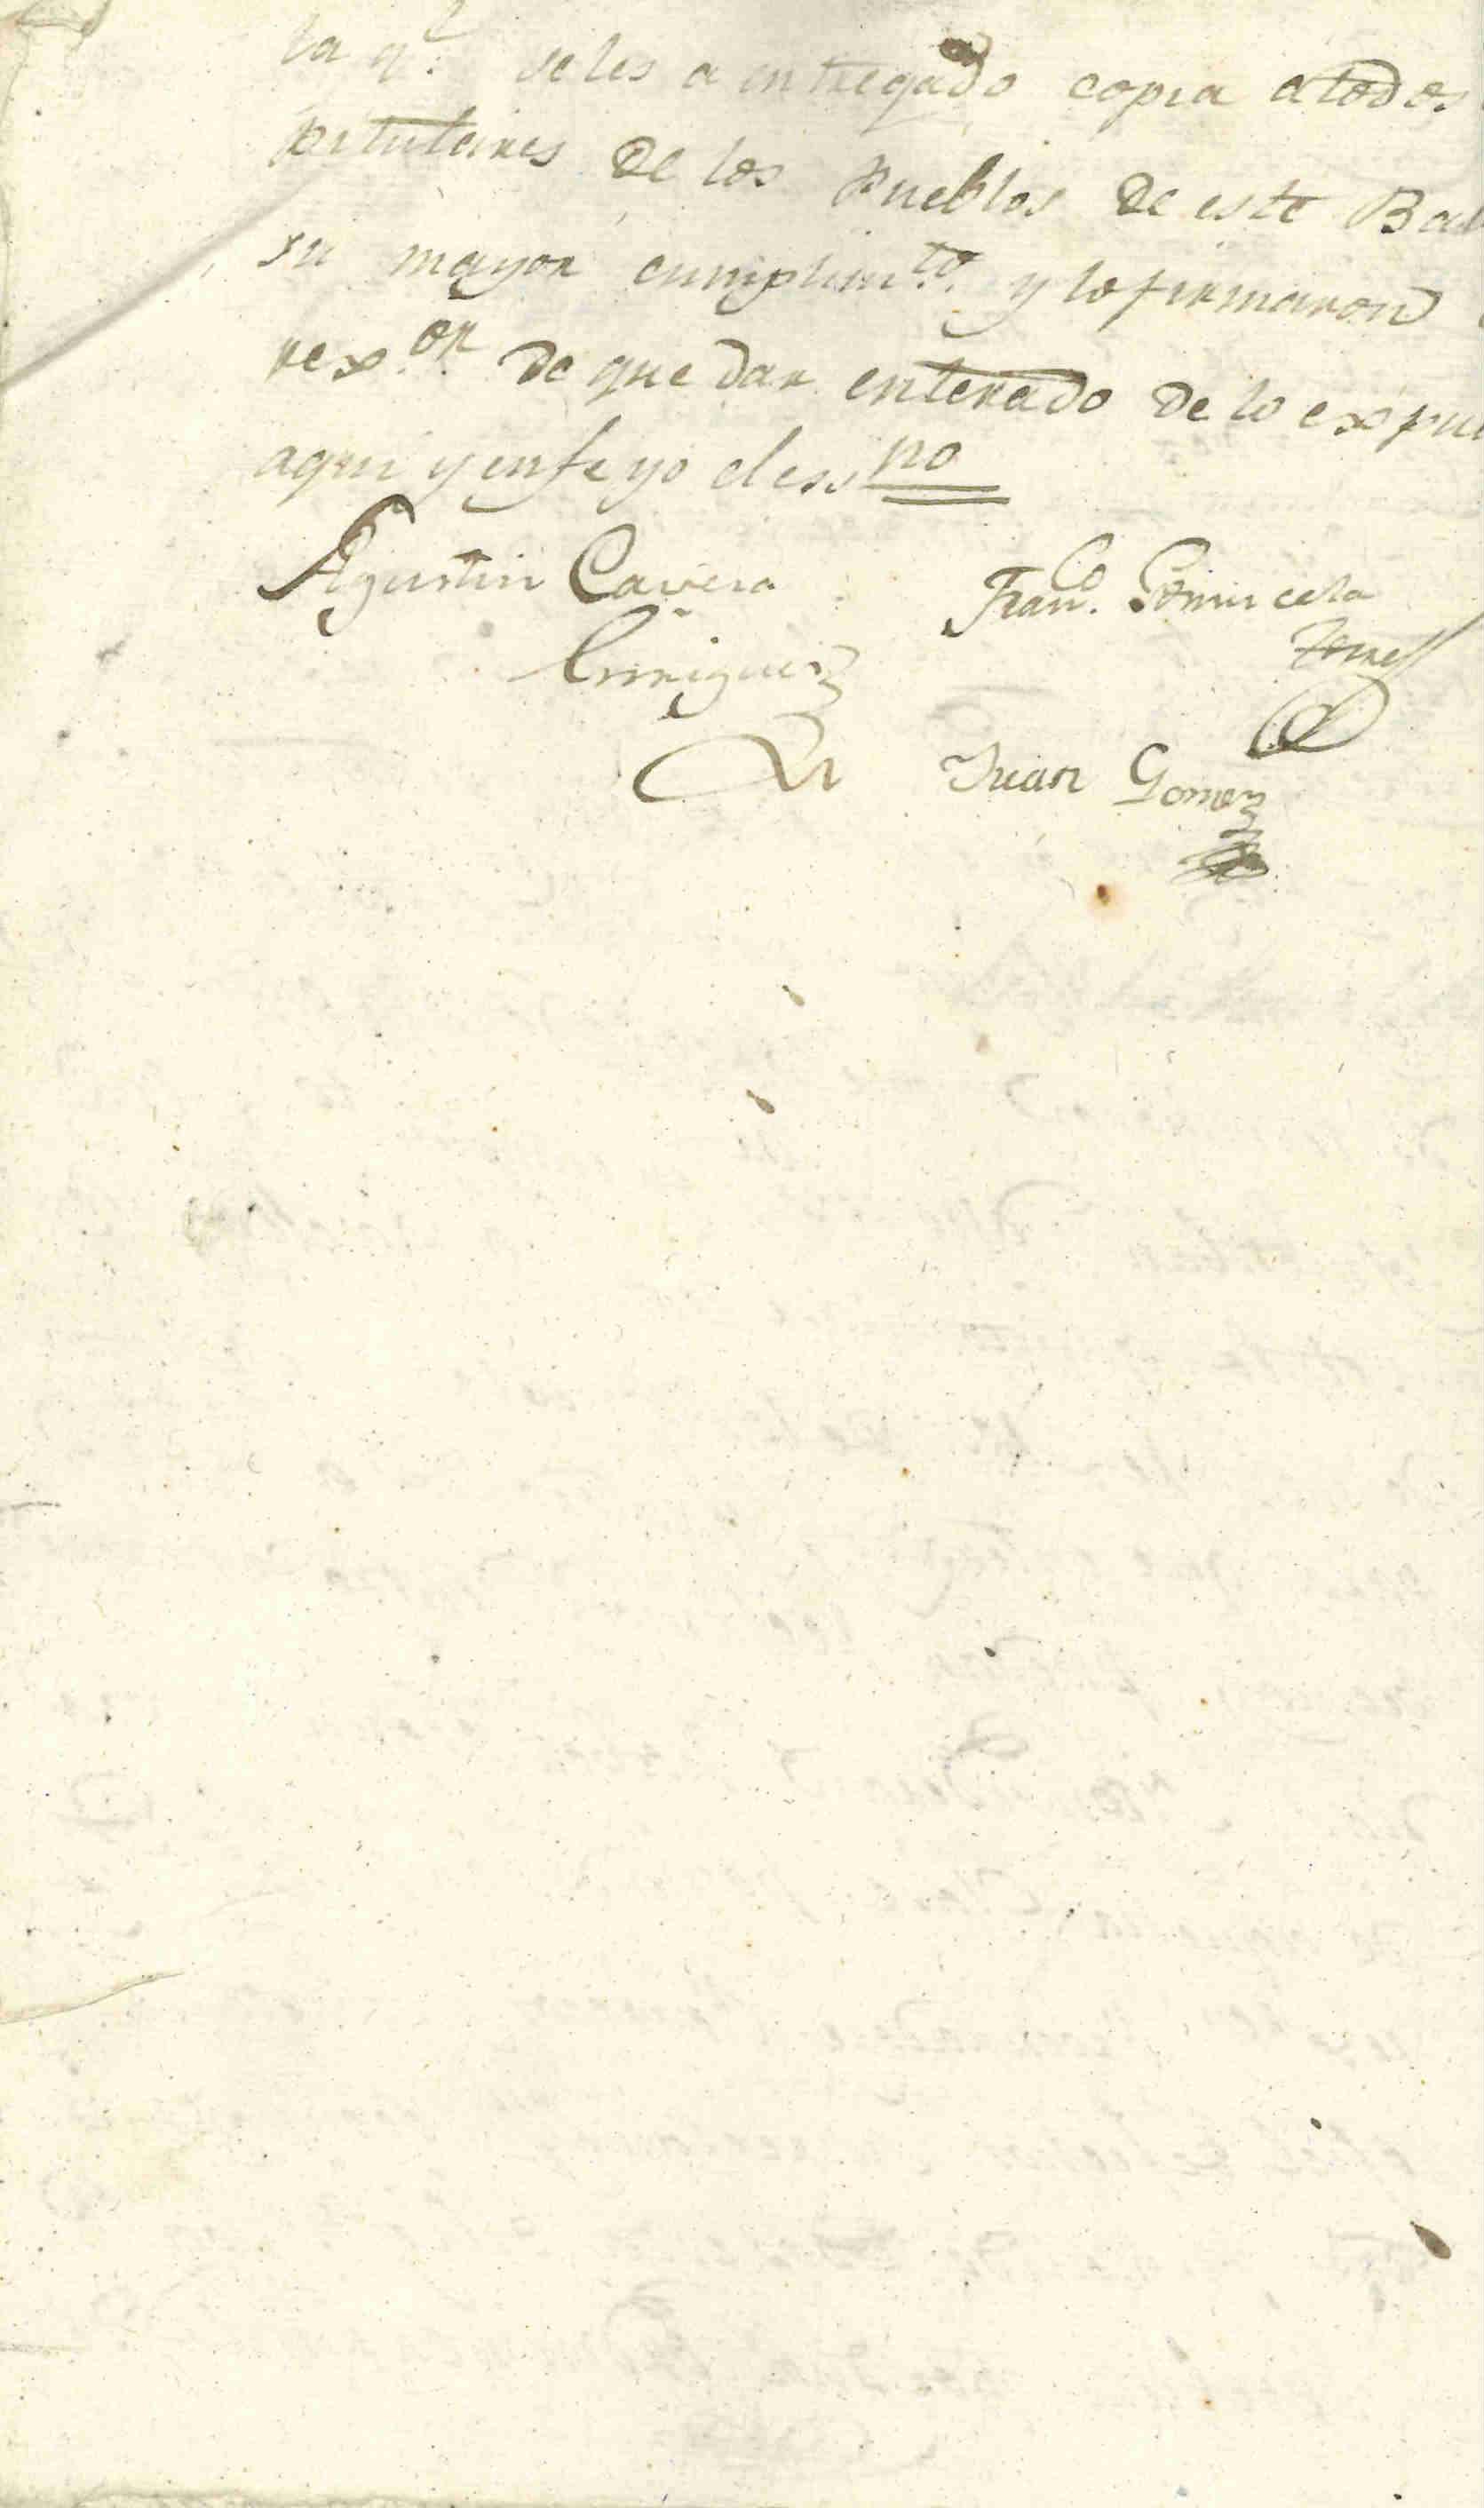 la q.e se les a entregado copia a todos
pitulares de los Pueblos de este Bal
su mayor cumplim.to y lo firmaron
rex.on de quedar enterado de lo expu
aqui y en fe yo el ess no
Agustin Cavesa Fran.co
Enriquez
Juan Gomez